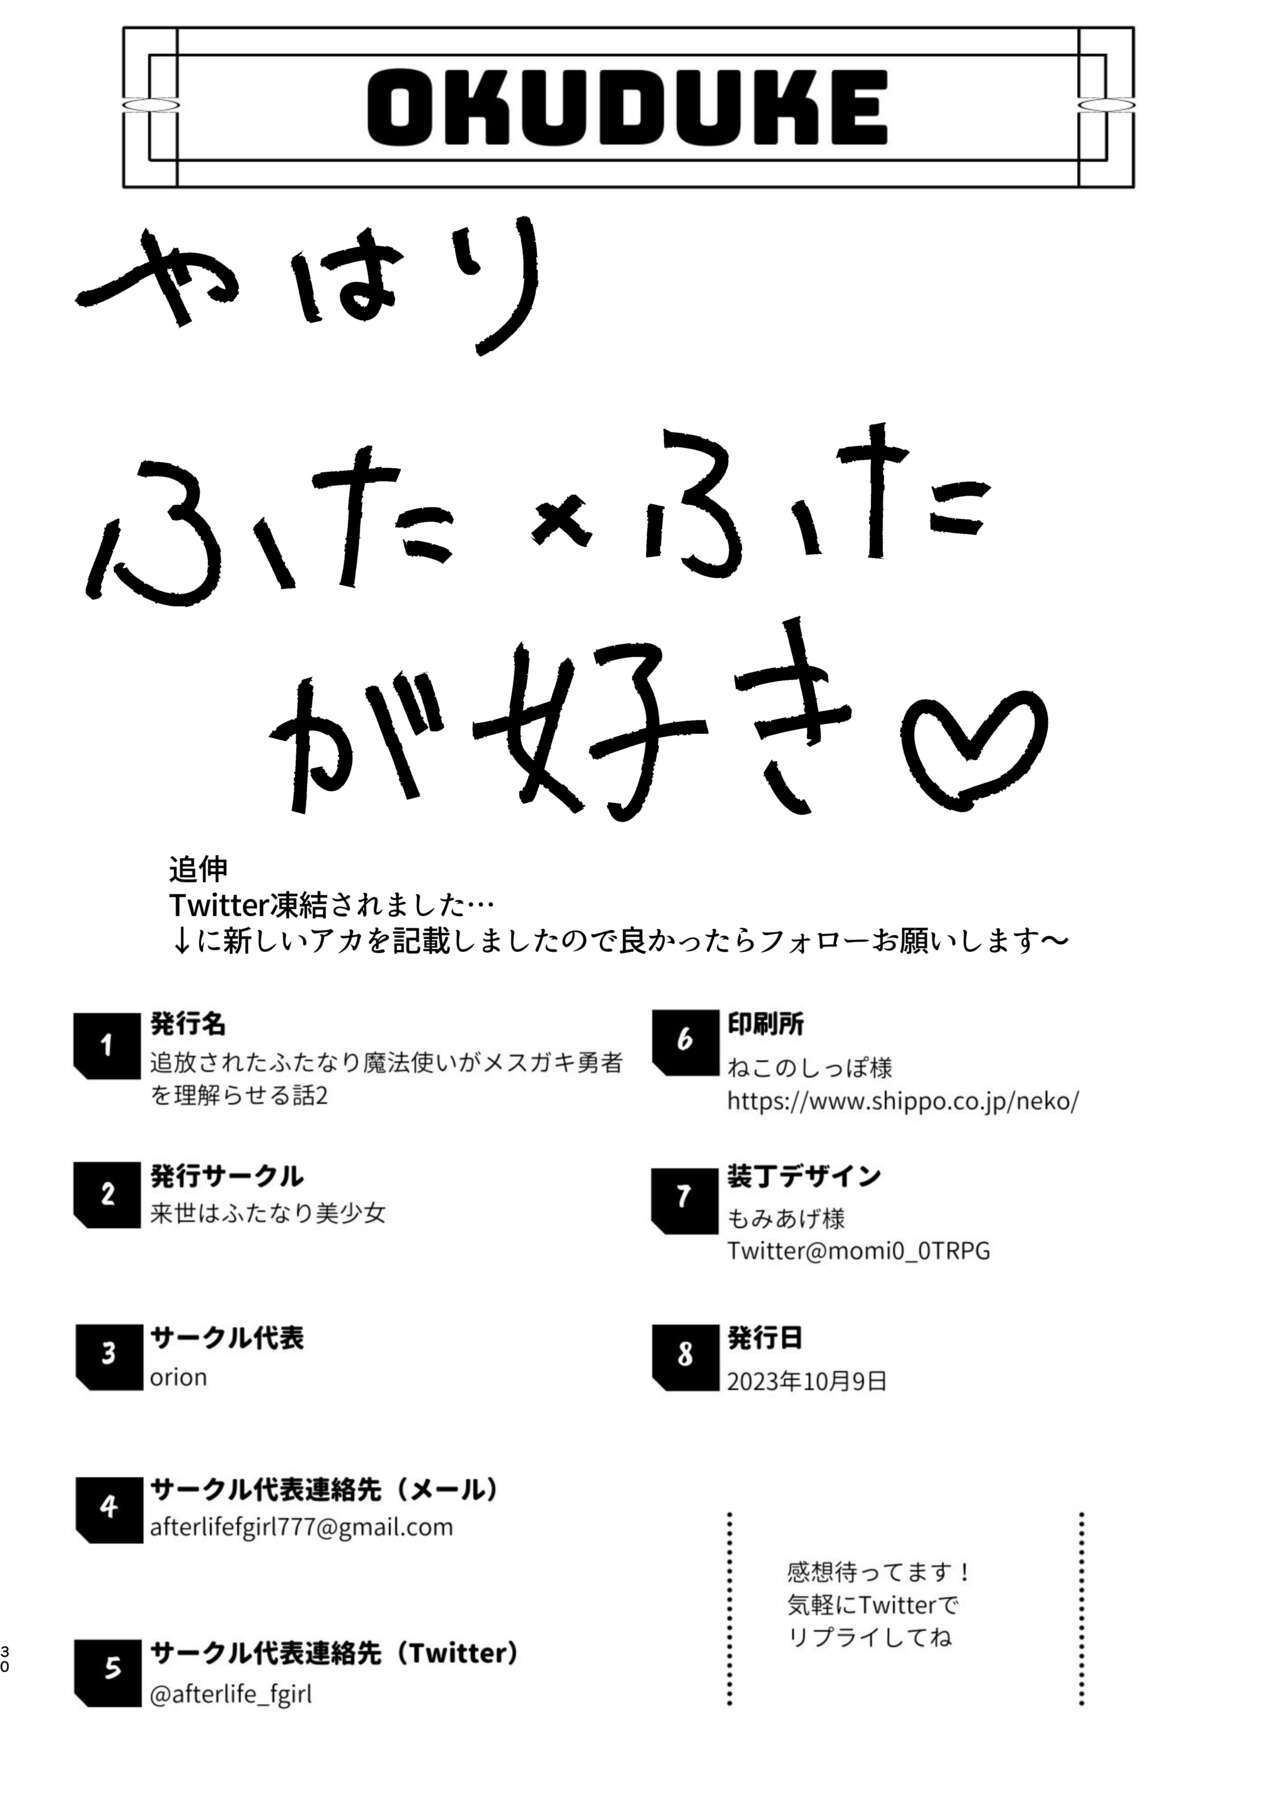 OKUDUKE
やはり
ふた×ふた
が好き♡
追伸
Twitter凍結されました…
↓に新しいアカを記載しましたので良かったらフォローお願いします〜
1 発行名
追放されたふたなり魔法使いがメスガキ勇者
を理解らせる話2
2 発行サークル
来世はふたなり美少女
3 サークル代表
orion
4 サークル代表連絡先（メール）
afterlifefgirl777@gmail.com
5 サークル代表連絡先（Twitter）
@afterlife_fgirl
6 印刷所
ねこのしっぽ様
https://www.shippo.co.jp/neko/
7 装丁デザイン
もみあげ様
Twitter@momi0_0TRPG
8 発行日
2023年10月9日
感想待ってます！
気軽にTwitterで
リプライしてね
30